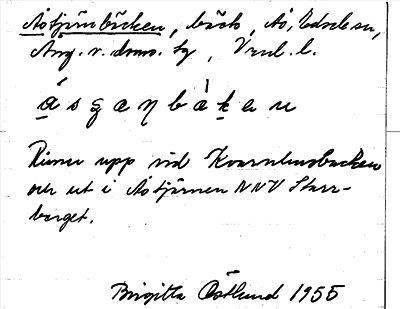 Åstjärnbäcken, bäck, Ås, Edsele sn,
Ång. v. doms. tg, Vnl. l.
å s ʒ æ ŋ b à k e n
Rinner upp vid Kvarnhusbacken
och ut i Åstjärnen NNV Starr-
berget.
Birgitta Östlund 1955